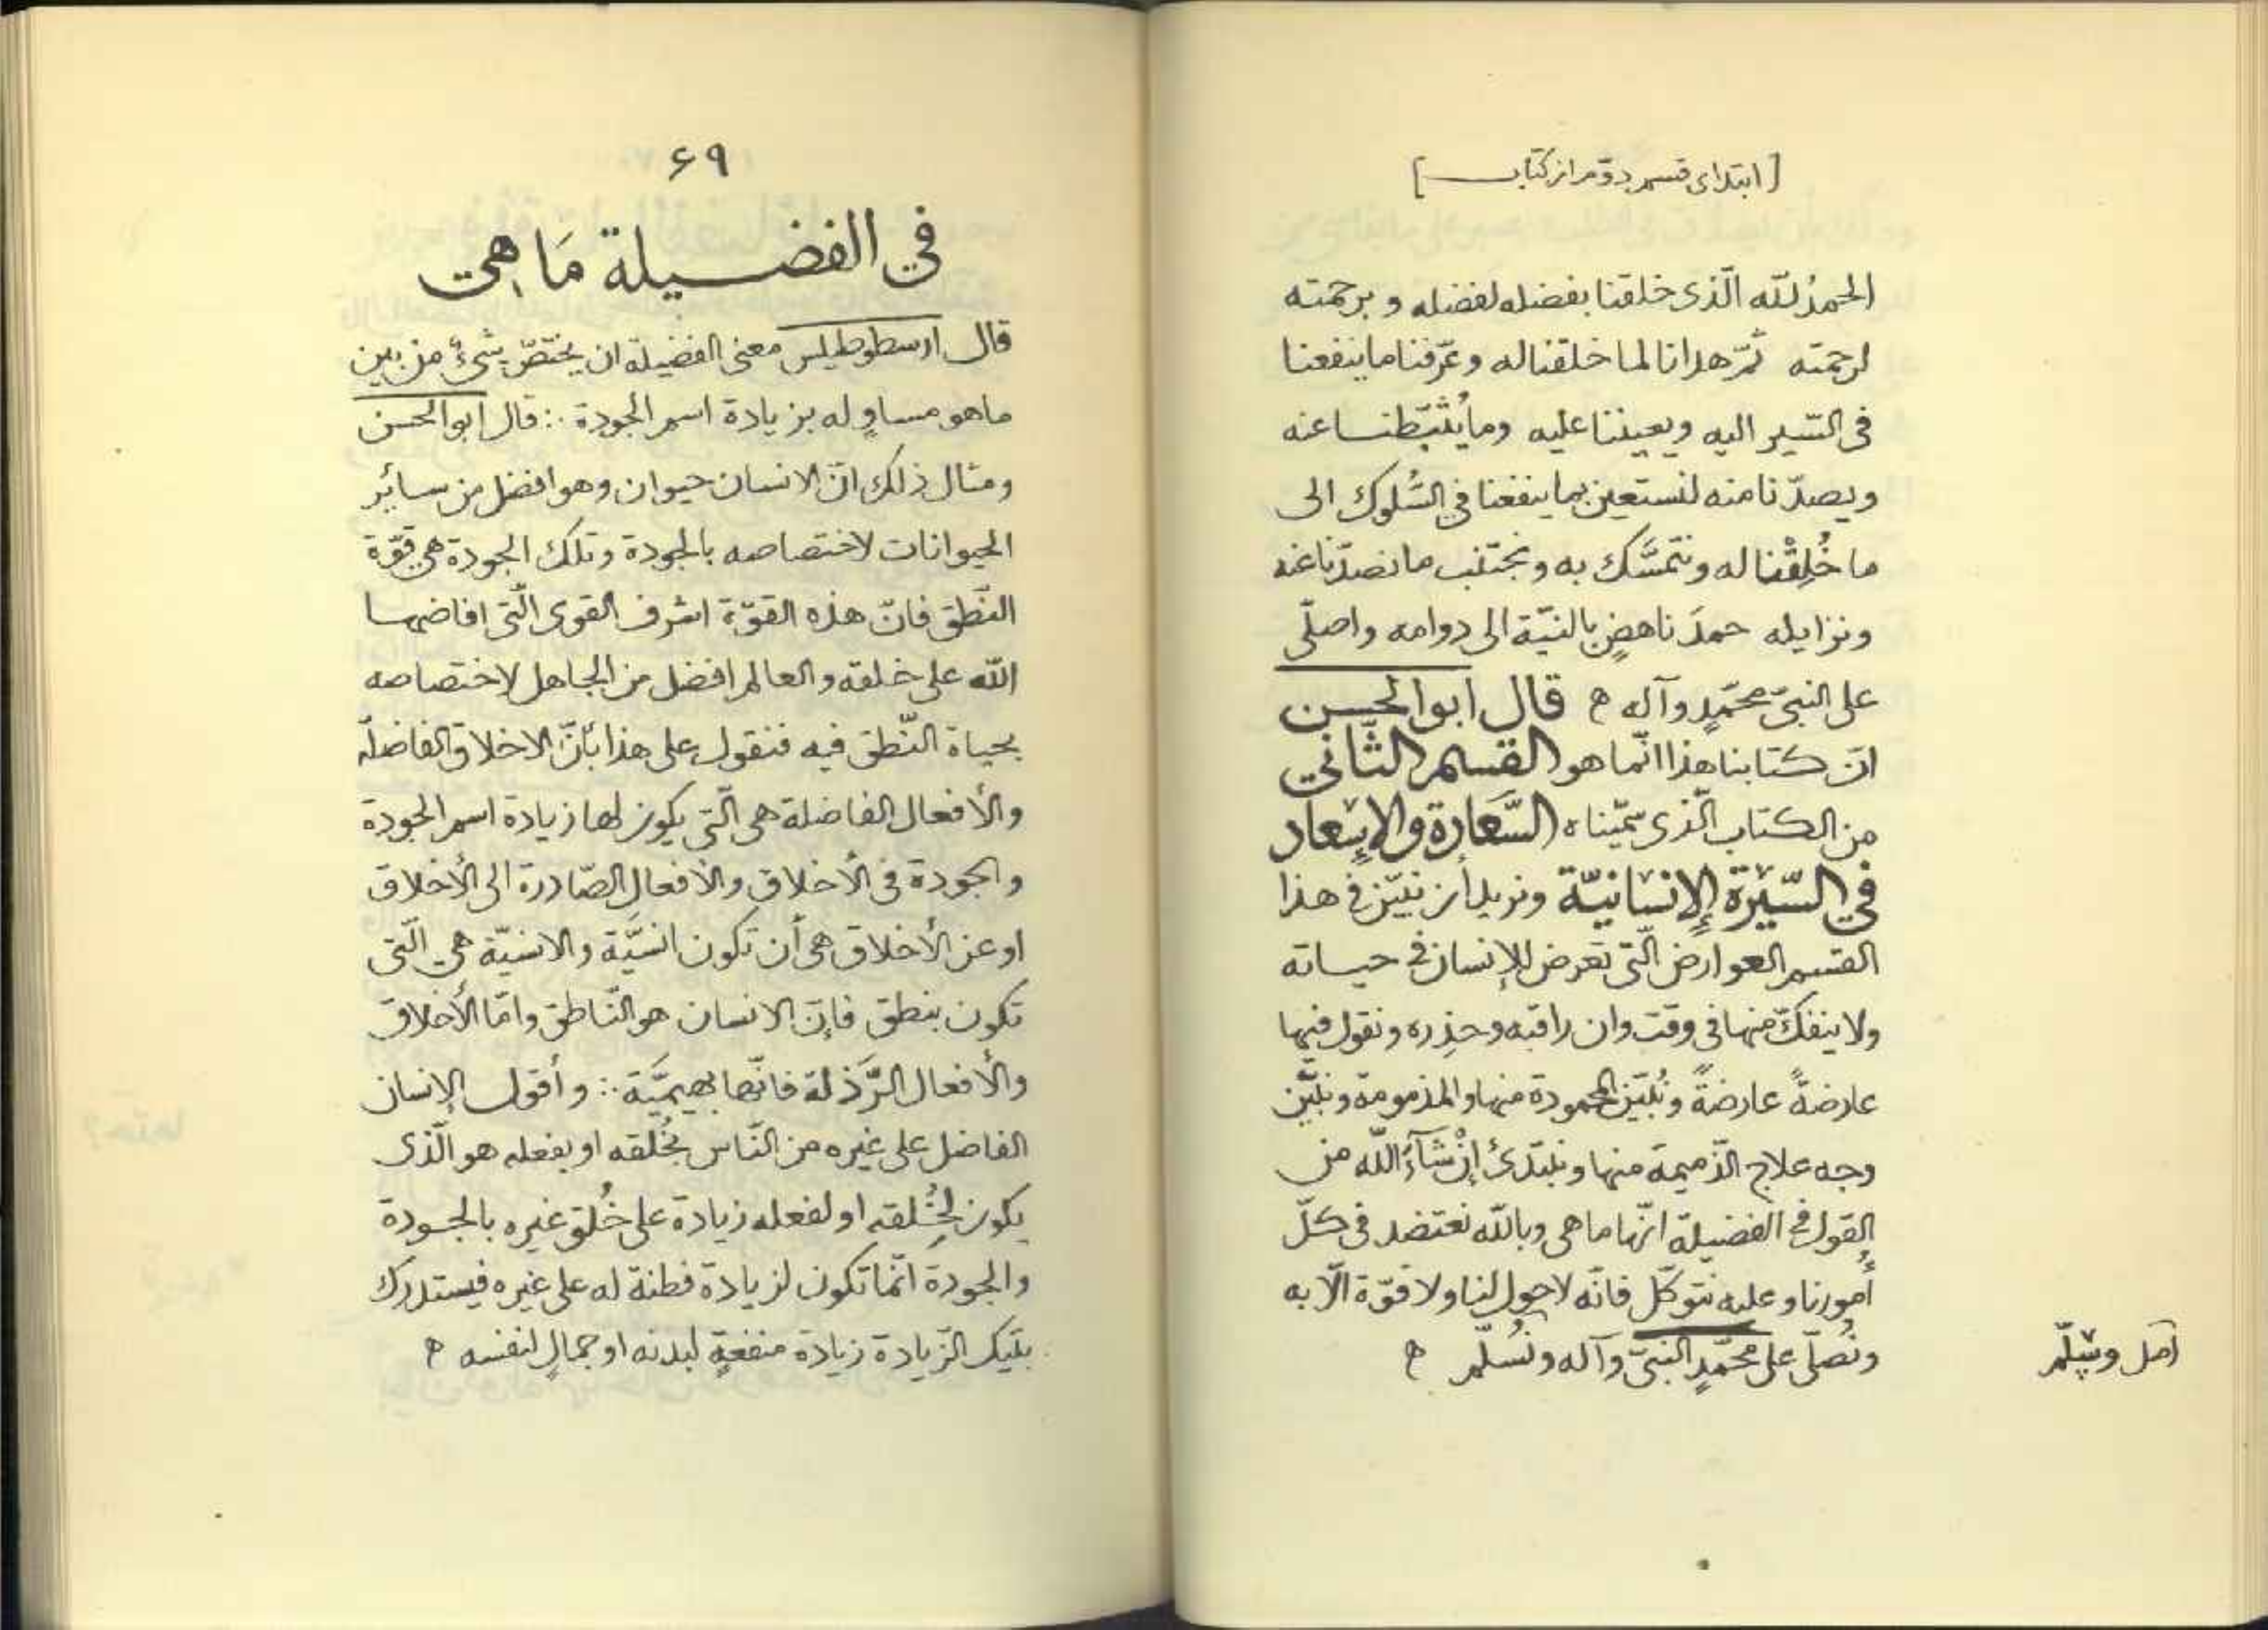 [ابتدای قسم دوّم از کتاب]
الحمدُ للّه الّذی خلقنا بفضله لفضله و برحمته
لرحمته ثمّ هدانا لما خلقنا له و عرّفنا ما ینفعنا
فی السّیر الیه و یعیننا علیه وما یُثبّطنا عنه
ویصدّنا منه لنستعین بما ینفعنا فی السُّلوک الی
ما خُلِقْنا له و نتمسَّک به و نجتنب ما نصدّنا عنه
ونزایله حمدَ ناهضٍ بالنیّة الی دوامه واصلّی
علی النبیّ محمّدٍ وآله ه قال ابوالحسن
انّ کتابنا هذا انّما هو القسم الثّانی
من الکتاب الّذی سمّیناه السَّعادة والإسعاد
فی السّیرة الإنسانیّة ونرید أن نبیّن فی هذا
القسم العوارض الّتی تعرض للإنسان فی حیاته
ولا ینفکّ منها فی وقت وان راقبه وحذره ونقول فیها
عارضةً عارضةً ونُبیّن المحمودة منها والمذمومة ونبیّن
وجه علاج الذّمیمة منها ونبتدئ إنْ شآءَ اللّه من
القول فی الفضیلة انّها ما هی وباللّه نعتضد فی کلّ
أمورنا وعلیه نتوکّل فانّه لا حول لنا ولا قوّة الّا به
ونُصلّی علی محمّدٍ النبیّ وآله ونُسلّم ه
اصل وسّلّم
۶۹
فی الفضیلة مَا هی
قال ارسطوطیلس معنی الفضیلة ان یختصّ شیءٌ من بین
ماهو مساوٍ له بزیادة اسم الجودة ∴ قال ابوالحسن
ومثال ذلک انّ الانسان حیوان وهو افضل من سائر
الحیوانات لاختصاصه بالجودة وتلک الجودة هی قوّة
النّطق فانّ هذه القوّة اشرف القوی الّتی افاضها
اللّه علی خلقه والعالم افضل من الجاهل لاختصاصه
بحیاة النّطق فیه فنقول علی هذا بأنّ الاخلاق الفاضلة
والأفعال الفاضلة هی الّتی یکون لها زیادة اسم الجودة
والجودة فی الأخلاق والأفعال الصّادرة الی الأخلاق
او عن الأخلاق هی أن تکون انسیَّة والانسیّة هی الّتی
تکون بنطق فإنّ الانسان هو النّاطق وامّا الأخلاق
والأفعال الرَّذلة فانّها بهیمیَّة ∴ وأقول الإنسان
الفاضل علی غیره من النّاس بخُلقه او بفعله هو الّذی
یکون لخُلقه او لفعله زیادة علی خُلق غیره بالجودة
والجودة انّما تکون لزیادة فطنة له علی غیره فیستدرک
بتیک الزّیادة زیادة منفعةٍ لبدنه او جمالٍ لنفسه ه